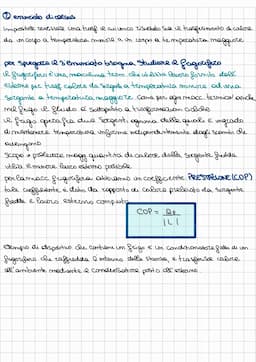 ① enunciato di clausius
impossibile realizzare una trasf. il cui unico risultato sia il trasferimento di calore
da un corpo a temperatura minore a un corpo a temperatura maggiore
per spiegare il 2° enunciato bisogna studiare il frigorifero
il frigorifero è una macchina term. che utilizza lavoro fornito dall'
esterno per trasf. calore da sorgente a temperatura minore ad una
sorgente a temperatura maggiore. Come per ogni macc. termica anche
nel frigo il fluido è sottoposto a trasformazioni cicliche
il frigo opera fra due sorgenti ognuna delle quali è in grado
di mantenere temperatura uniforme indipendentemente dagli scambi che
avvengono
Scopo = prelevare magg. quantità di calore dalla sorgente fredda
utilizz. il minore lavoro esterno possibile
per la macc. frigorifera abbiamo un coefficiente PRESTAZIONE (COP)
tale coefficiente è dato da rapporto di calore prelevato da sorgente
fredda e lavoro esterno compiuto
COP = Q / |L|
Esempio di dispositivo che contiene un frigo è un condizionatore fatto di un
frigorifero che raffredda l'interno della stanza, e trasferisce calore
all'ambiente mediante il condensatore posto all'esterno.